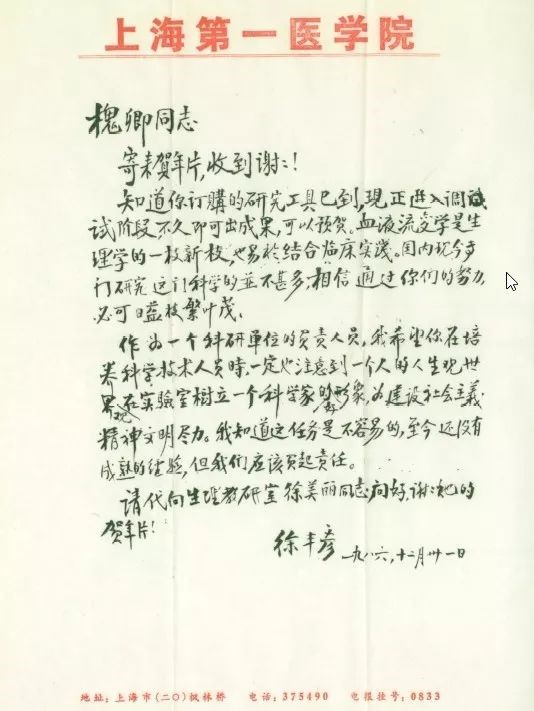 上海第一医学院
槐卿同志
寄来贺年片,收到谢谢!
知道你订購的研究工具已到,現正进入调试
试阶段,不久即可出成果,可以预贺。血液流变学是生
理学的一枝新枝,也易於结合临床实践。国内现今专
门研究这门科学的並不甚多,相信通过你们的努力,
必可日益枝繁叶茂。
作为一个科研单位的负责人员,我希望你在培
养科学技术人员时,一定也注意到一个人的人生观世
界观,在实验室樹立一个科学家的形象,为建设社会主義
精神文明尽力。我知道这任务是不容易的,至今还没有
成熟的经验,但我们应该负起责任。
请代向生理教研室徐美丽同志向好,谢谢她的
贺年片!
徐丰彦 一九八六,十二月卅一日
地址:上海市(二〇)枫林桥 电话:375490 电报挂号:0833